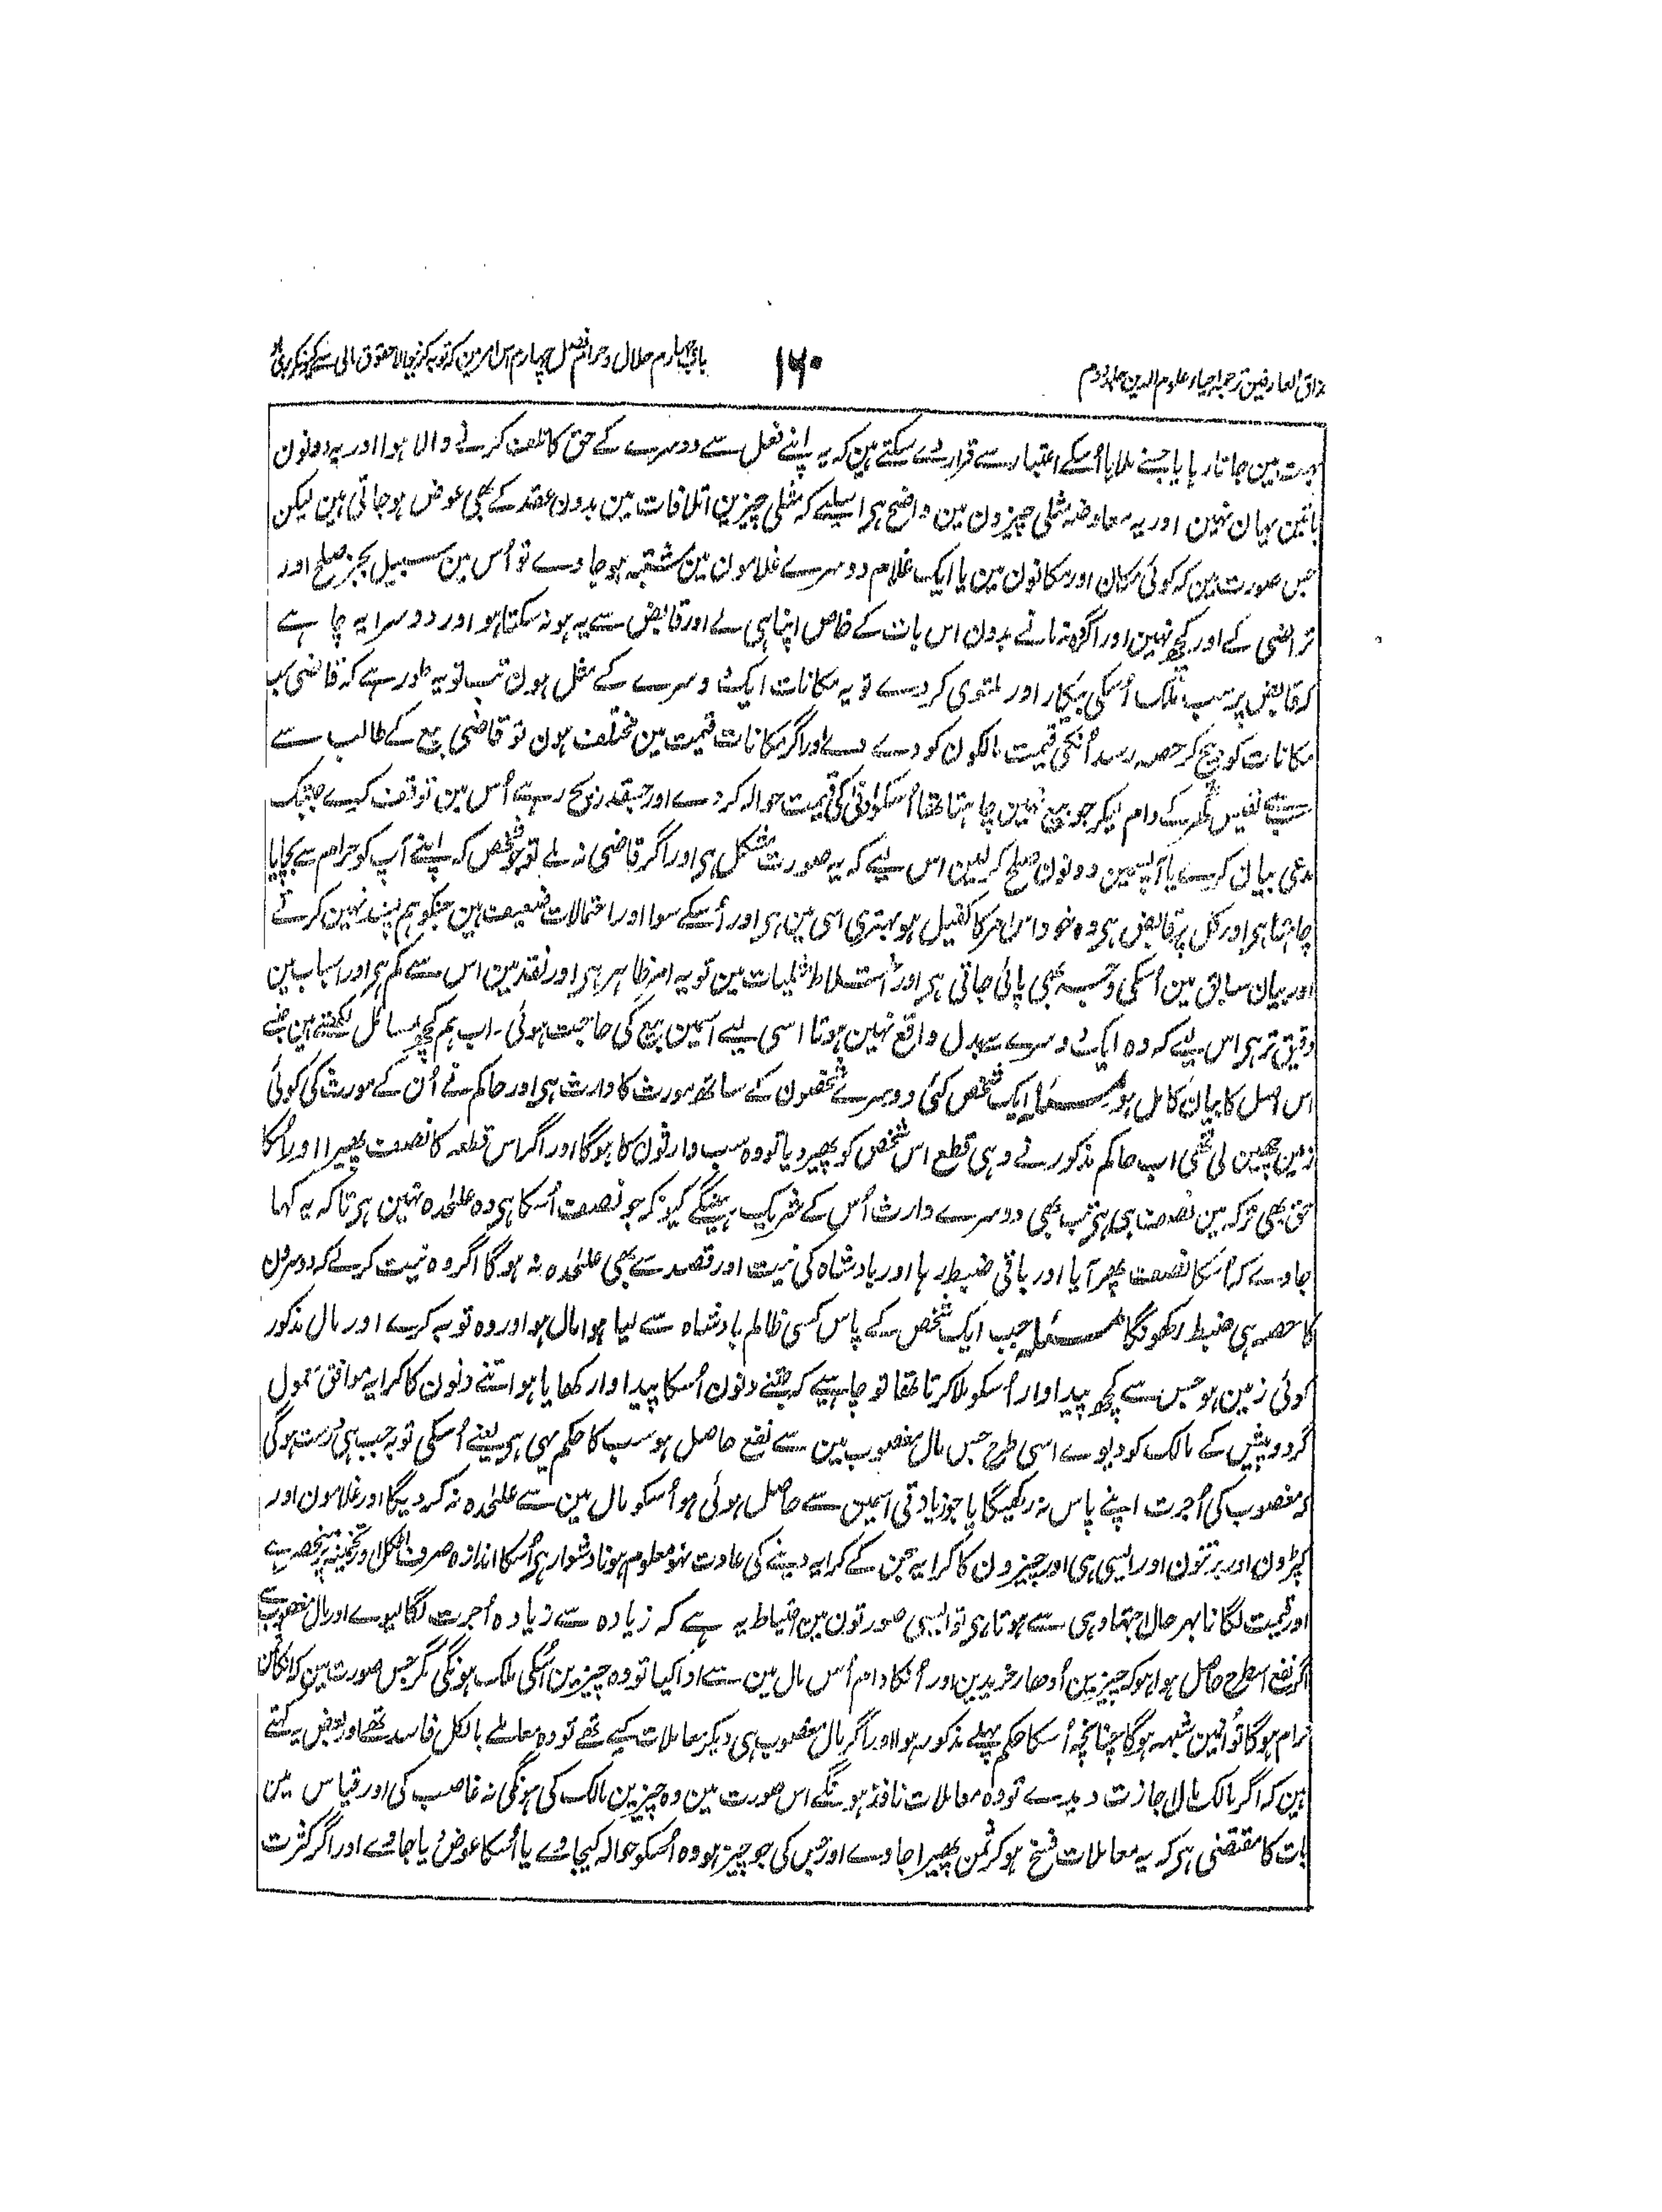 مذاق العارفین ترجمہ احیاء علوم الدین جلد دوم
۱۶۰
باب چہارم حلال و حرام فصل چہارم اس امر مین کہ توبہ کرنیوالا حقوق مالی سے کیونکر بری ہو
مین جاتا رہا یا جسنے ملایا اُسکے اعتبار سے قرار دے سکتے ہین کہ یہ اپنے فعل سے دوسرے کے حق کا تلف کرنے والا ہوا اور یہ دونون
باتین یہان نہین اور یہ معاوضہ مثلی چیزون مین واضح ہی اسلیے کہ مثلی چیزین اتلافات مین بدون عقد کے بھی عوض ہو جاتی ہین لیکن
جس صورت مین کہ کوئی مکان اور مکانون مین یا ایک غلام دوسرے غلامون مین مشتبہ ہو جاوے تو اُس مین سبیل بجز صلح اور
تراضی کے اور کچھ نہین اور اگر وہ نہ مانے بدون اس بات کے خاص اپنا ہی لے اور قابض سے یہ ہو نہ سکتا ہو اور دوسرا یہ چاہے
کہ قابض پر سب ملک اُسکی بیکار اور ملتوی کر دے تو یہ مکانات ایک دوسرے کے مثل ہون تب تو یہ طور ہے کہ قاضی سب
مکانات کو بیچ کر حصہ رسد اُنکی قیمت مالکون کو دے دے اور اگر مکانات قیمت مین مختلف ہون تو قاضی بیع کے طالب سے
سب سے نفیس گھر کے دام لیکر جو بیع نہین چاہتا تھا اُسکو ادنیٰ کی قیمت حوالہ کر دے اور جسقدر بچ رہے اُس مین توقف کیے جبتک
مدعی بیان کرے یا آپسمین دونون صلح کر لین اس لیے کہ یہ صورت مشکل ہی اور اگر قاضی نہ ملے تو جو شخص کہ اپنے آپ کو حرام سے بچایا
چاہتا ہی اور کل پر قابض ہی وہ خود اس امر کا کفیل ہو بہتری اسی مین ہی اور اُسکے سوا اور احتمالات ضعیف ہین جنکو ہم پسند نہین کرتے
اور بیان سابق مین اُسکی وجہ بھی پائی جاتی ہی اور اختلاط مثلیات مین تو یہ امر ظاہر ہی اور نقد مین اس سے کم ہی اور اسباب مین
دقیق تر ہی اس لیے کہ وہ ایک دوسرے سے بدل واقع نہین ہوتا اسی لیے اسمین بیع کی حاجت ہوئی۔ اب ہم کچھ مسائل لکھتے ہین جنسے
اس اصل کا بیان کامل ہو مسئلہ ایک شخص کئی دوسرے شخصون کے ساتھ مورث کا وارث ہی اور حاکم نے اُن کے مورث کی کوئی
زمین چھین لی تھی اب حاکم مذکور نے وہی قطع اس شخص کو پھیر دیا تو وہ سب وارثون کا ہوگا اور اگر اس قطعہ کا نصف پھیرا اور اُسکا
حق بھی ترکہ مین نصف ہی ہی تب بھی دوسرے وارث اُس کے شریک رہینگے کیونکہ جو نصف اُسکا ہی وہ علٰحدہ نہین ہی تاکہ یہ کہا
جاوے کہ اُسکا نصف پھر آیا اور باقی ضبط رہا اور بادشاہ کی نیت اور قصد سے بھی علٰحدہ نہ ہوگا اگر وہ نیت کرلے کہ دوسرون
کا حصہ ہی ضبط رکھونگا مسئلہ جب ایک شخص کے پاس کسی ظالم بادشاہ سے لیا ہوا مال ہو اور وہ توبہ کرے اور مال مذکور
کوئی زمین ہو جس سے کچھ پیداوار اُسکو ملا کرتا تھا تو چاہیے کہ جتنے دنون اُسکا پیداوار کھایا ہو اتنے دنون کا کرایہ موافق معمول
گرد و پیش کے مالک کو دیوے اسی طرح جس مال مغصوب مین سے نفع حاصل ہو سب کا حکم یہی ہی یعنے اُسکی توبہ جب ہی درست ہوگی
کہ مغصوب کی اُجرت اپنے پاس نہ رکھیگا یا جو زیادتی اسمین سے حاصل ہوئی ہو اُسکو مال مین سے علٰحدہ نہ کر دیگا اور غلامون اور
کپڑون اور برتنون اور ایسی ہی اور چیزون کا کرایہ جن کے کرایہ دینے کی عادت نہو معلوم ہونا دشوار ہی اُسکا اندازہ صرف اٹکل اور تخمینہ پر منحصر ہے
اور قیمت لگانا بہرحال اجتہاد ہی سے ہوتا ہی تو ایسی صورتون مین احتیاط یہ ہے کہ زیادہ سے زیادہ اُجرت لگا لیوے اور مال مغصوب سے
اگر نفع اسطرح حاصل ہوا ہو کہ چیزین اُدھار خریدین اور اُنکا دام اُس مال مین سے ادا کیا تو وہ چیزین اُسکی ملک ہونگی مگر جس صورت مین کہ اُنکا ثمن
حرام ہوگا تو اُنمین شبہہ ہوگا چنانچہ اُسکا حکم پہلے مذکور ہو لا اور اگر مال مغصوب ہی دیکر معاملات کیے تھے تو وہ معاملے بالکل فاسد تھے اور بعض یہ کہتے
ہین کہ اگر مالک مال اجازت دیدے تو وہ معاملات نافذ ہونگے اس صورت مین وہ چیزین مالک کی ہونگی نہ غاصب کی اور قیاس مین
بات کا مقتضی ہی کہ یہ معاملات فسخ ہو کر ثمن پھیرا جاوے اور جس کی جو چیز ہو وہ اُسکو حوالہ کیجاوے یا اُسکا عوض دیا جاوے اور اگر کثرت